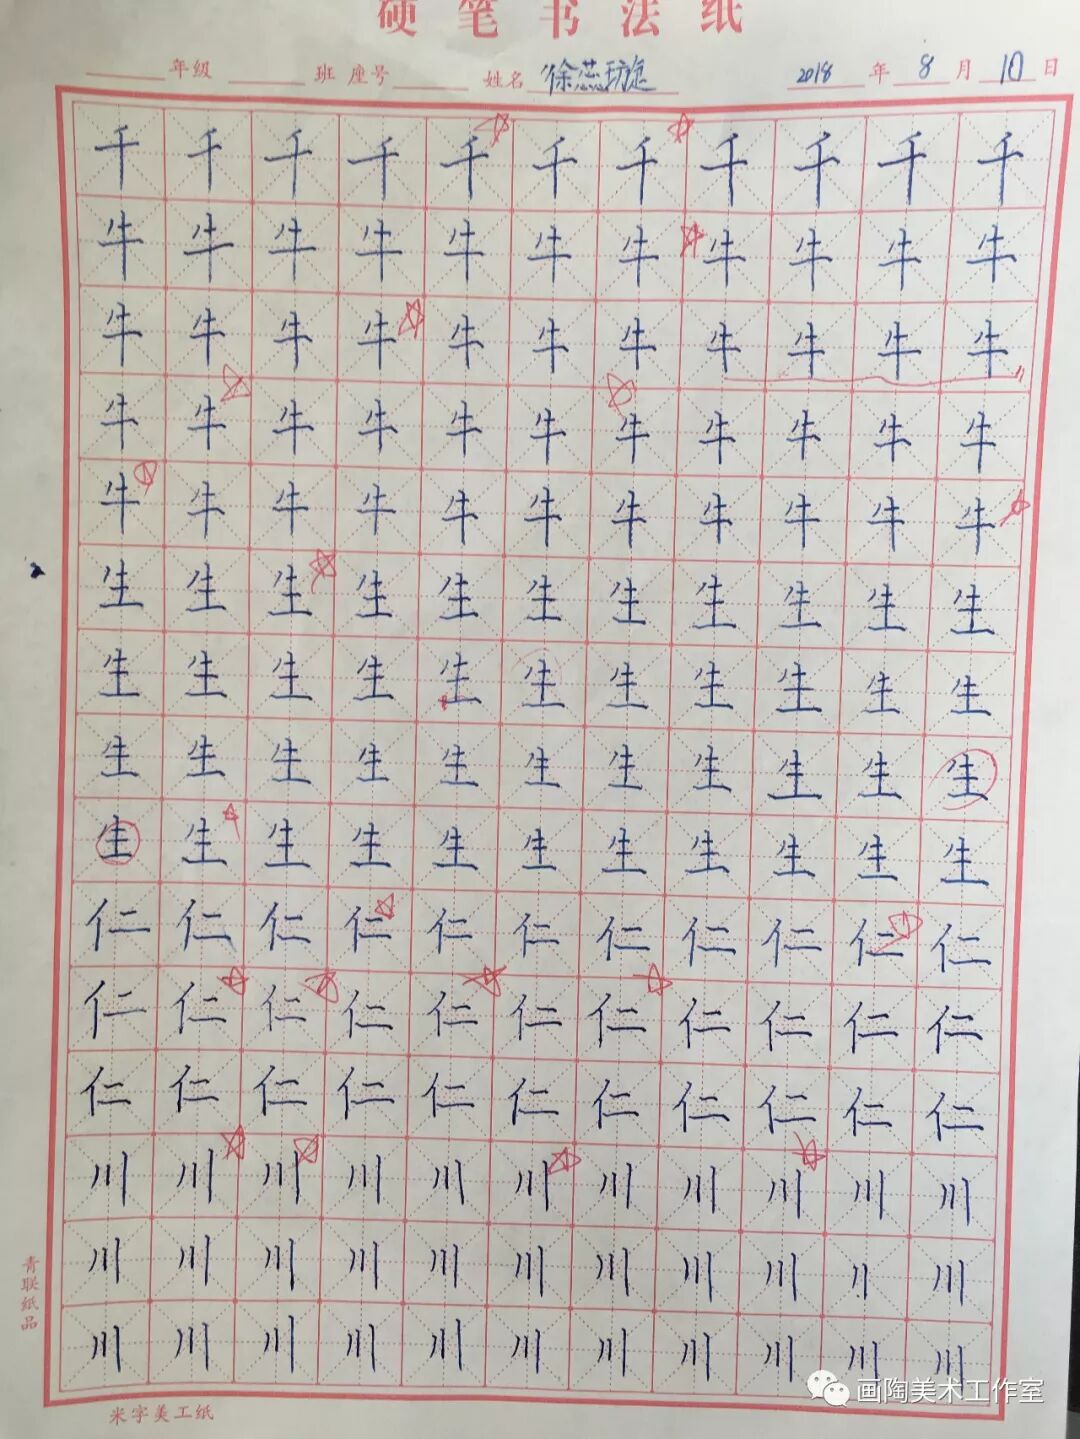 硬笔书法纸
年级 班 座号 姓名 徐蕊璇 2018 年 8 月 10 日
千 千 千 千 千 千 千 千 千 千 千
牛 牛 牛 牛 牛 牛 牛 牛 牛 牛 牛
牛 牛 牛 牛 牛 牛 牛 牛 牛 牛 牛
牛 牛 牛 牛 牛 牛 牛 牛 牛 牛 牛
牛 牛 牛 牛 牛 牛 牛 牛 牛 牛 牛
生 生 生 生 生 生 生 生 生 生 生
生 生 生 生 生 生 生 生 生 生 生
生 生 生 生 生 生 生 生 生 生 生
生 生 生 生 生 生 生 生 生 生 生
仁 仁 仁 仁 仁 仁 仁 仁 仁 仁 仁
仁 仁 仁 仁 仁 仁 仁 仁 仁 仁 仁
仁 仁 仁 仁 仁 仁 仁 仁 仁 仁 仁
川 川 川 川 川 川 川 川 川 川 川
川 川 川 川 川 川 川 川 川 川 川
川 川 川 川 川 川 川 川 川 川 川
青联纸品
米字美工纸
画陶美术工作室